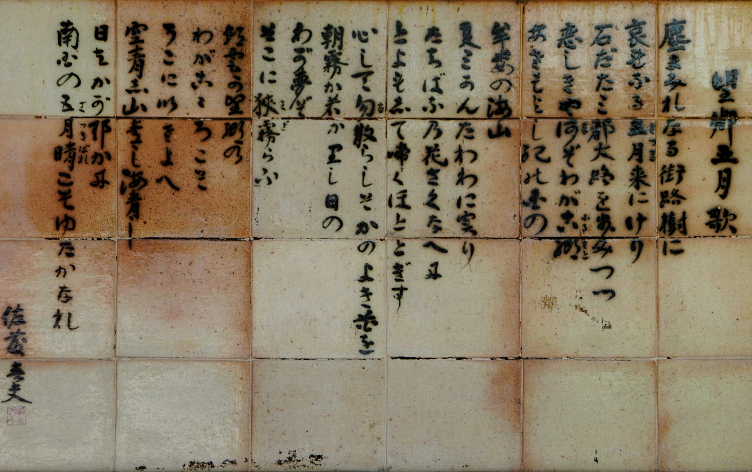 望郷五月歌
塵まみれなる街路樹に
哀れなる五月来にけり
石だたみ都大路を歩みつつ
恋しきやなぞわが古郷
あさもよし紀の国の
牟婁の海山
夏みかんたわわに実り
たちばなの花さくなべに
とよもして啼くほととぎす
心して勿散らしそかのよき花を
朝霧か若かりし日の
わが夢ぞ
そこに狭霧らふ
朝雲か望郷の
わがこころこそ
そこにいさよへ
空青し山青し海青し
日はかがやかに
南国の五月晴こそゆたかなれ
佐藤春夫